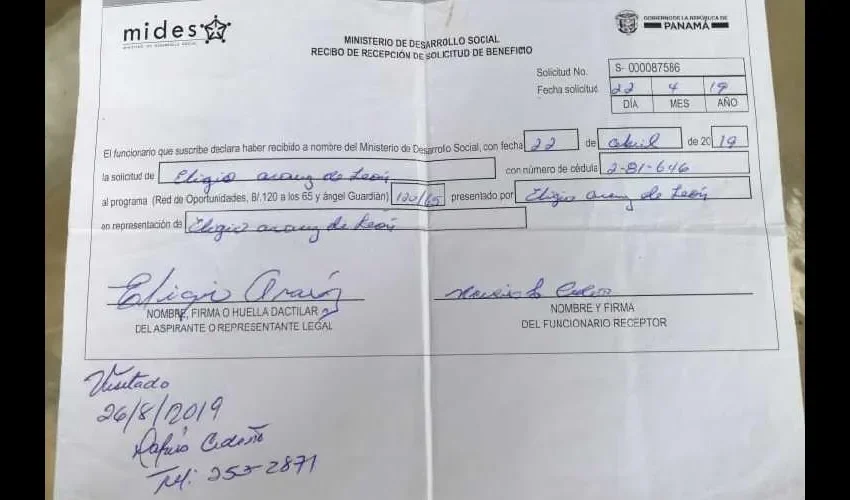 mides
MINISTERIO DE DESARROLLO SOCIAL
GOBIERNO DE LA REPÚBLICA DE
PANAMÁ
MINISTERIO DE DESARROLLO SOCIAL
RECIBO DE RECEPCIÓN DE SOLICITUD DE BENEFICIO
Solicitud No. S- 000087586
Fecha solicitud 22 4 19
DÍA MES AÑO
El funcionario que suscribe declara haber recibido a nombre del Ministerio de Desarrollo Social, con fecha 22 de abril de 2019
la solicitud de Eligio arauz de León con número de cédula 2-81-646
al programa (Red de Oportunidades, B/.120 a los 65 y ángel Guardián) 120/65 presentado por Eligio arauz de León
en representación de Eligio arauz de León
Eligio Arauz
NOMBRE, FIRMA O HUELLA DACTILAR
DEL ASPIRANTE O REPRESENTANTE LEGAL
NOMBRE Y FIRMA
DEL FUNCIONARIO RECEPTOR
Visitado
26/8/2019
Cedeño
Tel: 253-2871